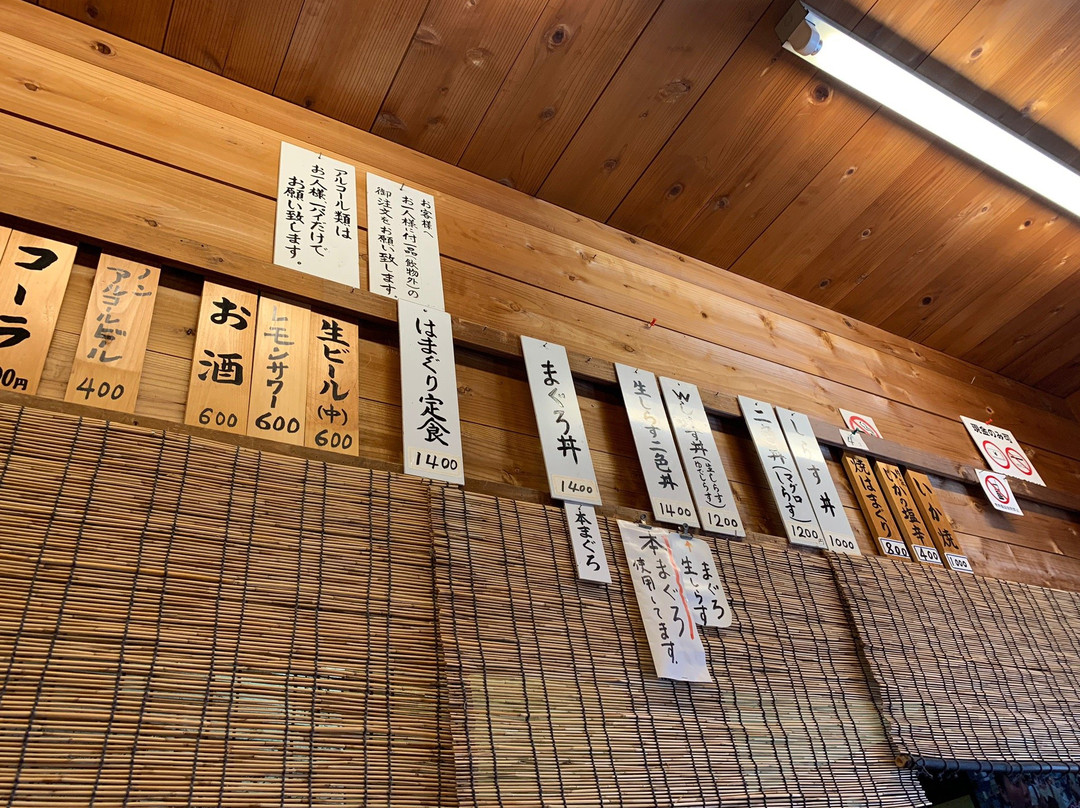 コーラ
00円
ノン
アルコールビール
400
お酒
600
レモンサワー
600
生ビール
(中)
600
アルコール類は
お一人様一杯だけで
お願い致します。
お客様へ
お一人様に付一品(飲物外)の
御注文をお願い致します。
はまぐり定食
1400
まぐろ丼
1400
本まぐろ
生しらす二色丼
1400
Wしらす丼
(生しらす
ゆでしらす)
1200
二色丼
(マグロ
しらす)
1200
しらす丼
1000
本まぐろ
使用してます。
まぐろ
生しらす
焼はまぐり
800
いかの塩辛
400
いか焼
1000
現金のみ可